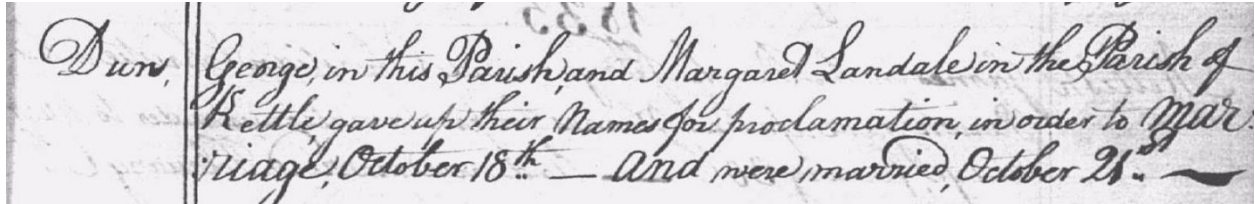 Dun, George, in this Parish, and Margaret Landale in the Parish of
Kettle, gave up their Names for proclamation, in order to Mar-
:riage, October 18th. — And were married, October 21st. —